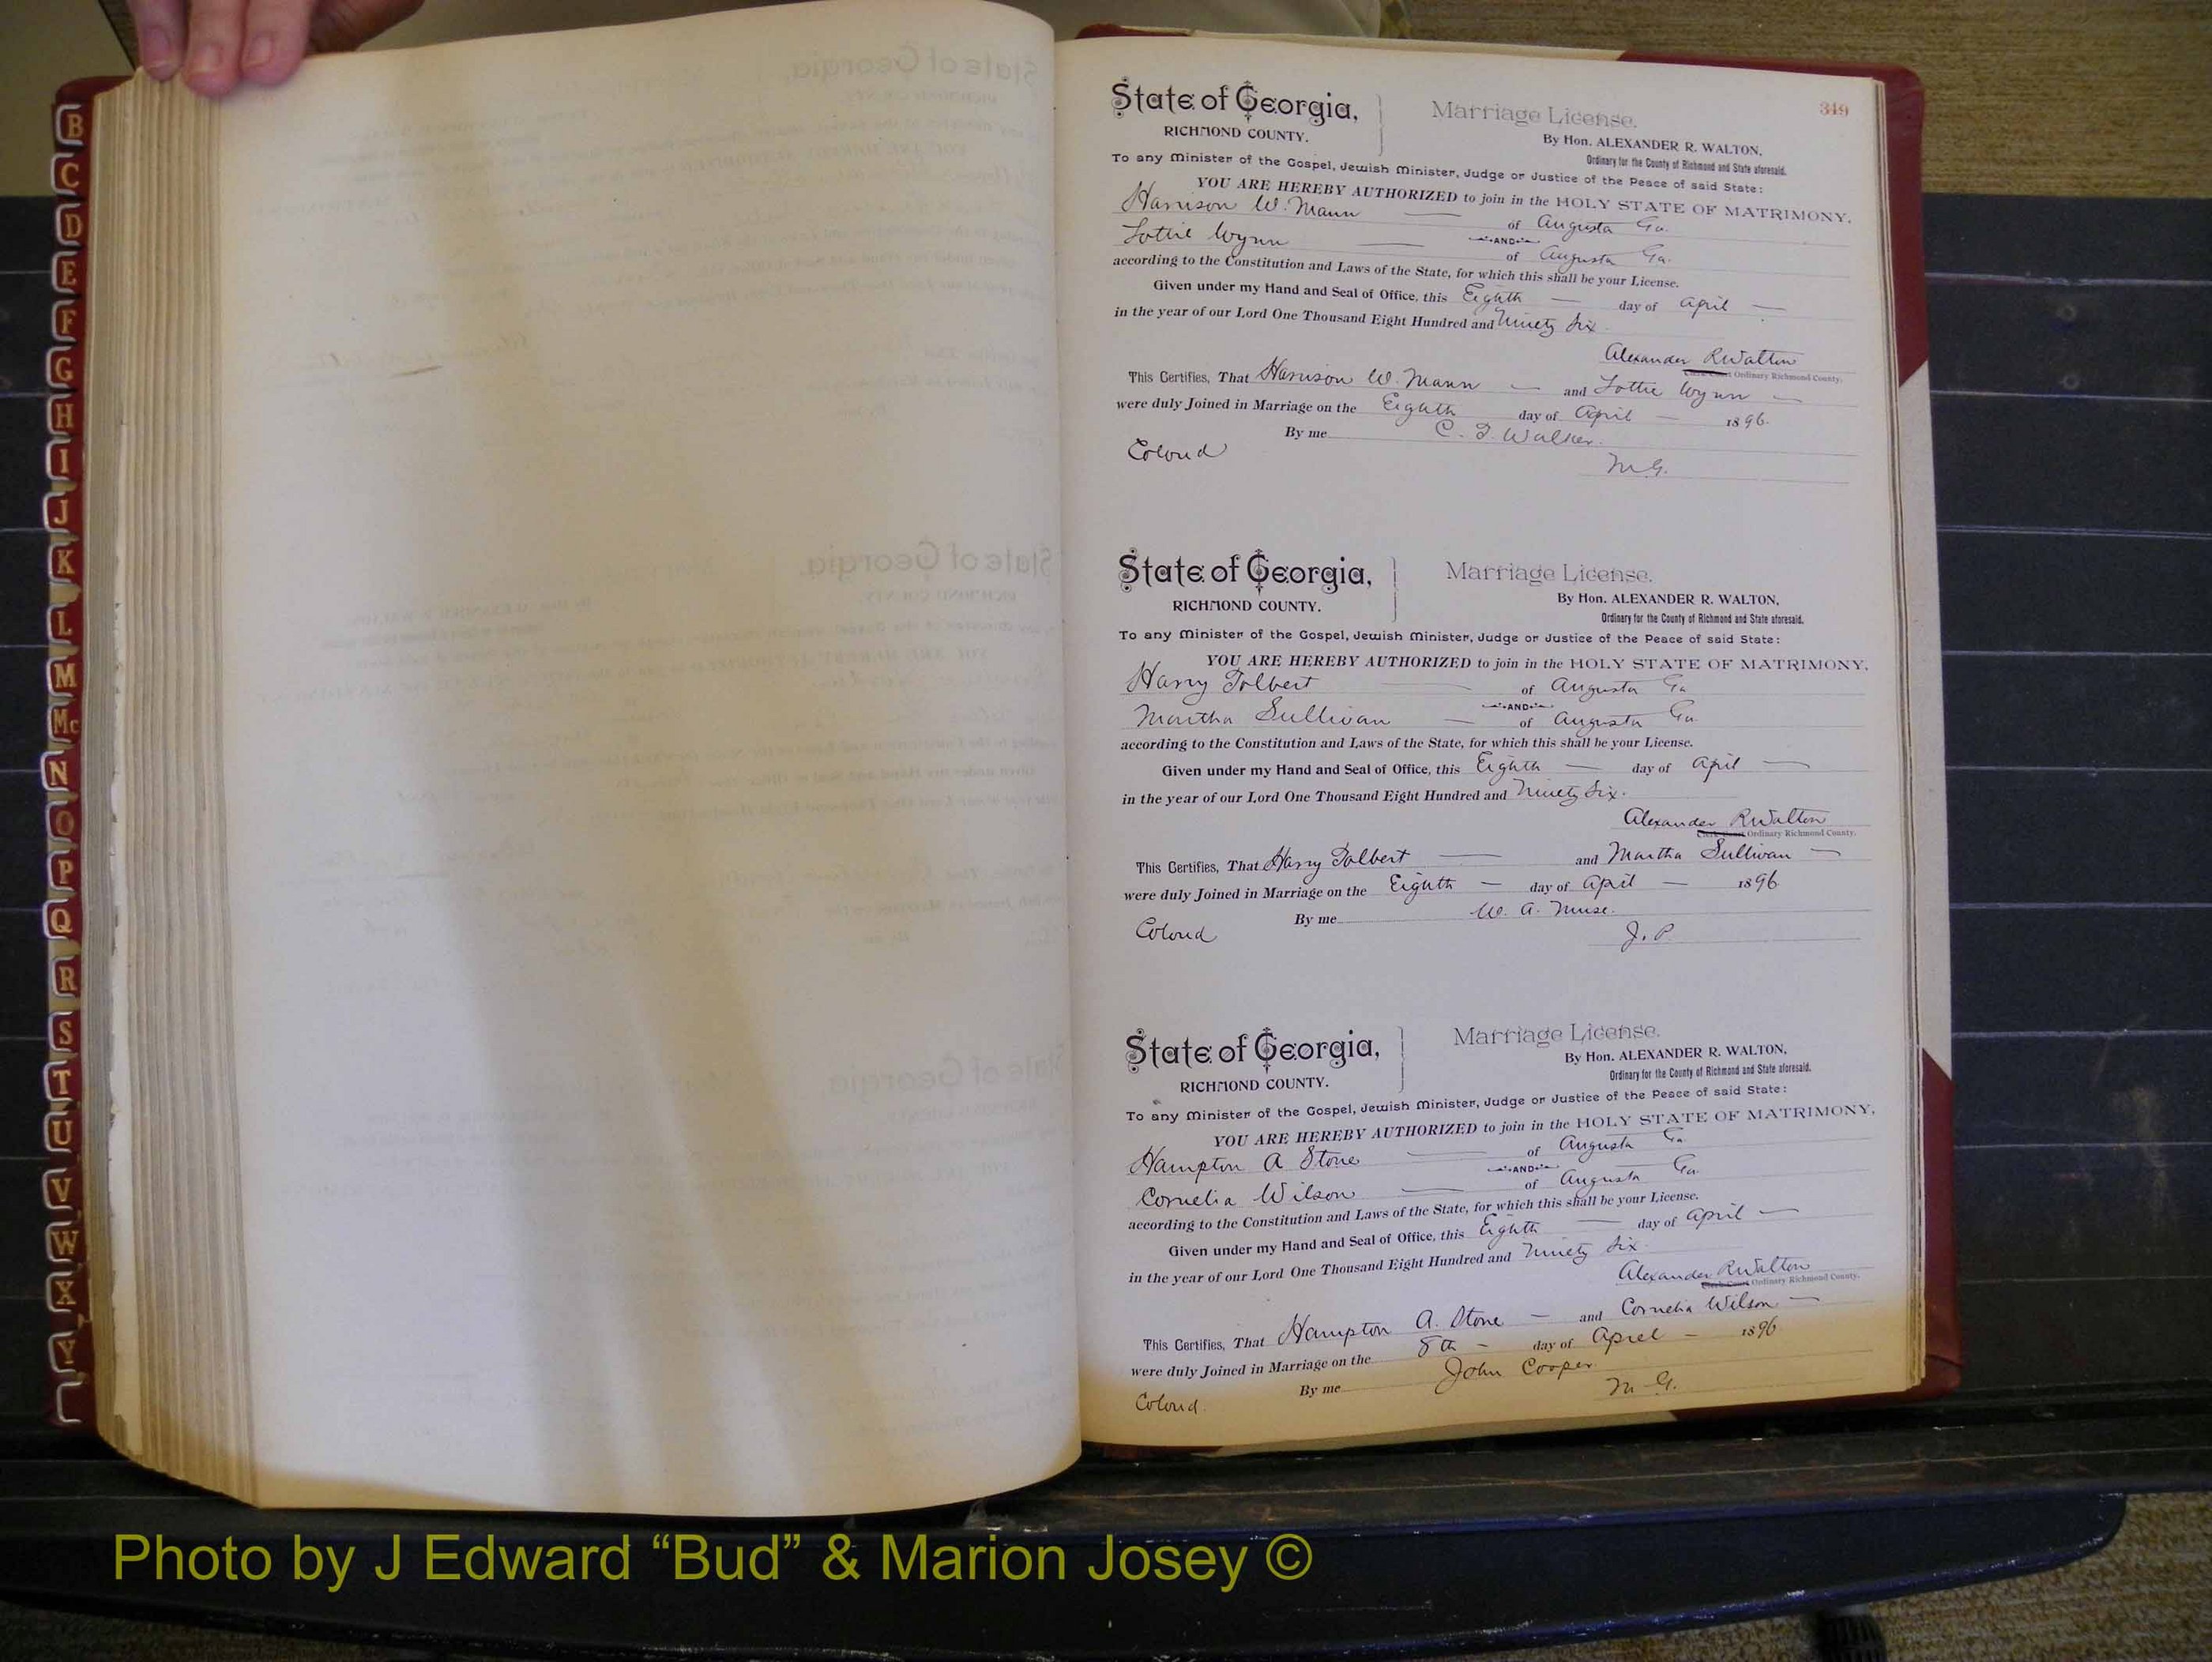 B
C
D
E
F
G
H
I
J
K
L
M
Mc
N
O
P
Q
R
S
T
U
V
W
X
Y
349
State of Georgia,
RICHMOND COUNTY.
Marriage License.
By Hon. ALEXANDER R. WALTON,
Ordinary for the County of Richmond and State aforesaid.
To any Minister of the Gospel, Jewish Minister, Judge or Justice of the Peace of said State:
YOU ARE HEREBY AUTHORIZED to join in the HOLY STATE OF MATRIMONY,
Harrison W. Mann of Augusta Ga.
AND
Lottie Wynn of Augusta Ga.
according to the Constitution and Laws of the State, for which this shall be your License.
Given under my Hand and Seal of Office, this Eighth day of April
in the year of our Lord One Thousand Eight Hundred and Ninety Six
Alexander R Walton
Ordinary Richmond County.
This Certifies, That Harrison W. Mann and Lottie Wynn
were duly Joined in Marriage on the Eighth day of April 1896.
By me C. T. Walker.
Colored
M G.
State of Georgia,
RICHMOND COUNTY.
Marriage License.
By Hon. ALEXANDER R. WALTON,
Ordinary for the County of Richmond and State aforesaid.
To any Minister of the Gospel, Jewish Minister, Judge or Justice of the Peace of said State:
YOU ARE HEREBY AUTHORIZED to join in the HOLY STATE OF MATRIMONY,
Harry Tolbert of Augusta Ga
AND
Martha Sullivan of Augusta Ga.
according to the Constitution and Laws of the State, for which this shall be your License.
Given under my Hand and Seal of Office, this Eighth day of April
in the year of our Lord One Thousand Eight Hundred and Ninety Six.
Alexander R Walton
Clerk Court Ordinary Richmond County.
This Certifies, That Harry Tolbert and Martha Sullivan
were duly Joined in Marriage on the Eighth day of April 1896.
By me W. A. Muse.
Colored
J. P.
State of Georgia,
RICHMOND COUNTY.
Marriage License.
By Hon. ALEXANDER R. WALTON,
Ordinary for the County of Richmond and State aforesaid.
To any Minister of the Gospel, Jewish Minister, Judge or Justice of the Peace of said State:
YOU ARE HEREBY AUTHORIZED to join in the HOLY STATE OF MATRIMONY,
Hampton A Stone of Augusta Ga.
AND
Cornelia Wilson of Augusta Ga.
according to the Constitution and Laws of the State, for which this shall be your License.
Given under my Hand and Seal of Office, this Eighth day of April
in the year of our Lord One Thousand Eight Hundred and Ninety Six
Alexander R Walton
Clerk Court Ordinary Richmond County.
This Certifies, That Hampton A. Stone and Cornelia Wilson
were duly Joined in Marriage on the 8th day of April 1896.
By me John Cooper
Colored.
M G.
Photo by J Edward “Bud” & Marion Josey ©